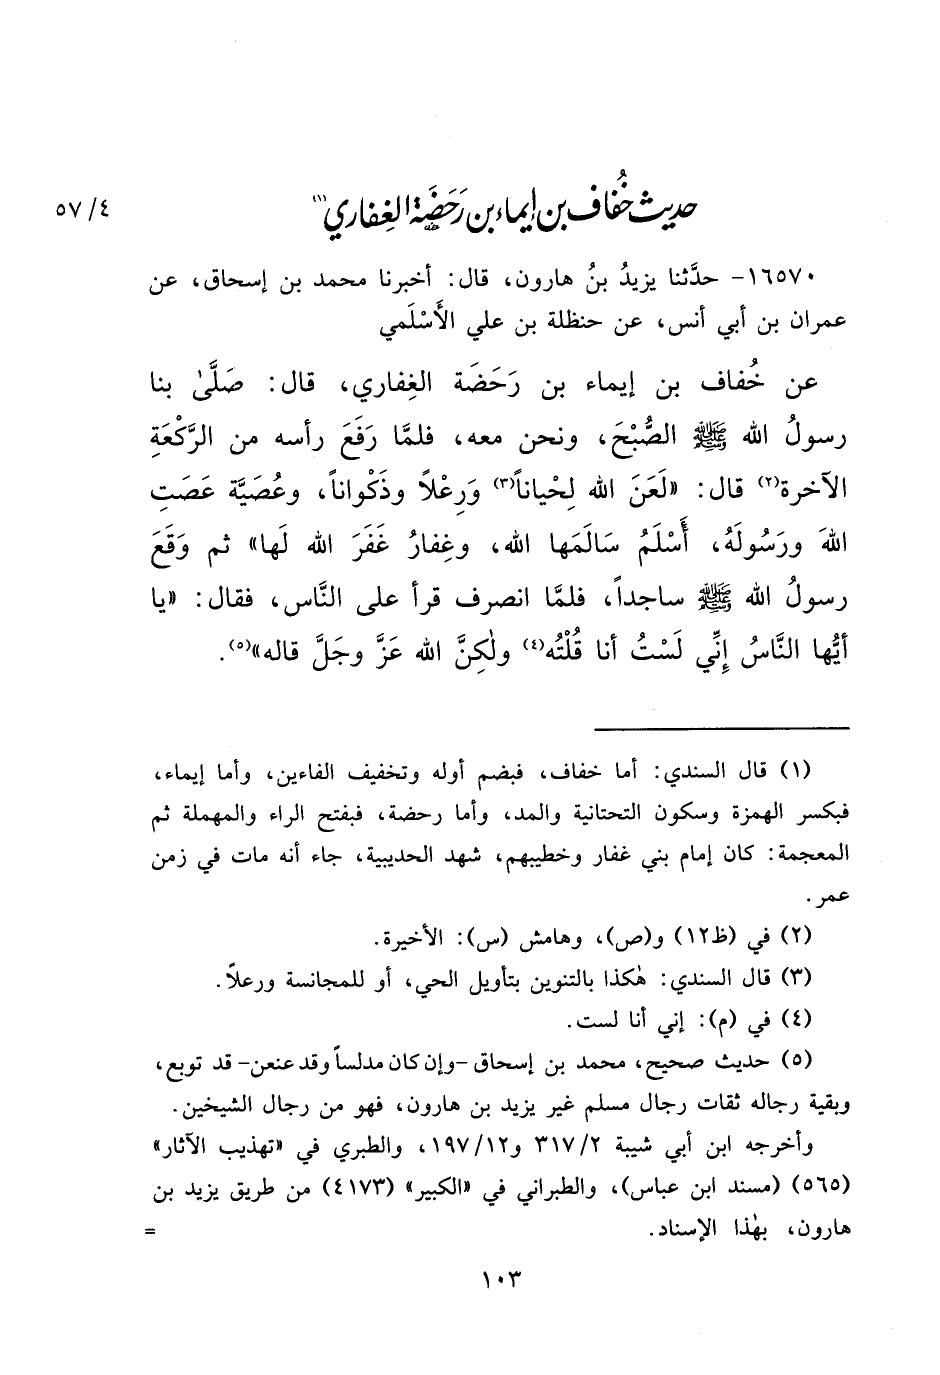 ٥٧/٤
حديث خُفاف بن إيماء بن رَحَضَة الغِفاري(١)
١٦٥٧٠- حدَّثنا يزيدُ بنُ هارون، قال: أخبرنا محمد بن إسحاق، عن
عمران بن أبي أنس، عن حنظلة بن علي الأَسْلَمي
عن خُفاف بن إيماء بن رَحَضَة الغِفاري، قال: صَلَّىٰ بنا
رسولُ الله ﷺ الصُّبْحَ، ونحن معه، فلمَّا رَفَعَ رأسه من الرَّكْعَةِ
الآخرة(٢) قال: «لَعَنَ الله لِحْياناً(٣) وَرِعْلاً وذَكْواناً، وعُصَيَّة عَصَتِ
اللهَ ورَسُولَهُ، أَسْلَمُ سَالَمَها الله، وغِفارُ غَفَرَ الله لَها» ثم وَقَعَ
رسولُ الله ﷺ ساجداً، فلمَّا انصرف قرأ على النَّاس، فقال: «يا
أيُّها النَّاسُ إِنِّي لَسْتُ أنا قُلْتُه(٤) ولٰكِنَّ الله عَزَّ وجَلَّ قاله»(٥).
(١) قال السندي: أما خفاف، فبضم أوله وتخفيف الفاءين، وأما إيماء،
فبكسر الهمزة وسكون التحتانية والمد، وأما رحضة، فبفتح الراء والمهملة ثم
المعجمة: كان إمام بني غفار وخطيبهم، شهد الحديبية، جاء أنه مات في زمن
عمر.
(٢) في (ظ١٢) و(ص)، وهامش (س): الأخيرة.
(٣) قال السندي: هٰكذا بالتنوين بتأويل الحي، أو للمجانسة ورعلاً.
(٤) في (م): إني أنا لست.
(٥) حديث صحيح، محمد بن إسحاق -وإن كان مدلساً وقد عنعن- قد توبع،
وبقية رجاله ثقات رجال مسلم غير يزيد بن هارون، فهو من رجال الشيخين.
وأخرجه ابن أبي شيبة ٣١٧/٢ و١٩٧/١٢، والطبري في «تهذيب الآثار»
(٥٦٥) (مسند ابن عباس)، والطبراني في «الكبير» (٤١٧٣) من طريق يزيد بن
هارون، بهٰذا الإسناد. =
١٠٣